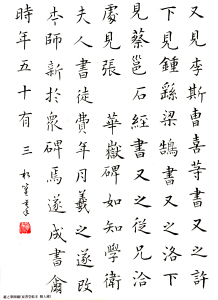 又見李斯曹喜等書又之許
下見鍾繇梁鵠書又之洛下
見蔡邕石經書又之從兄洽
處見張昶華嶽碑始知學衛
夫人書徒費年月羲之遂改
本師新於眾碑焉遂成書爾
時年五十有三